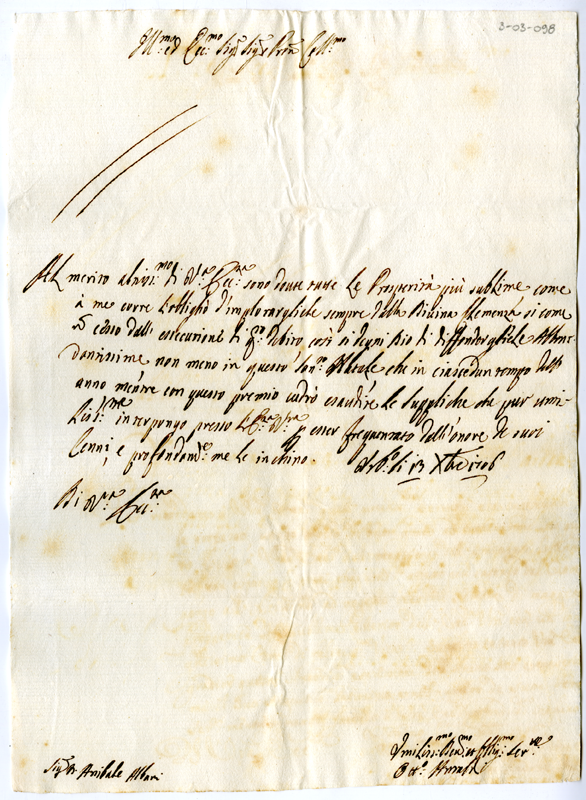 3-03-098
Ill:mo ed Ecc:mo Sig:r Sig:r e Pron Coll:mo
Al merito altiss:mo di V:ra Ecc:za sono dovute tutte le Prosperità più sublime come
à me corre l'obligo d'implorargliele sempre dalla Divina Clemenza si come
dall'essecuzione di q:to debito così si degni Dio di diffondergliele Abbon-
dantissime non meno in questo San:mo Natale che in ciascedun tempo dell'
anno mentre con questo premio vedrò esaudite le suppliche che pur umi-
interpongo presso l'Ecc:za V:ra p esser frequentato dell'onore de suoi
Cenni, e profondam:te me le inchino. Urb:o li 13 Xbre 1706
Di V:ra Ecc:za
Sig:r D. Anibale Albani
Umiliss:mo Dev:mo et Obblig:mo Ser:re